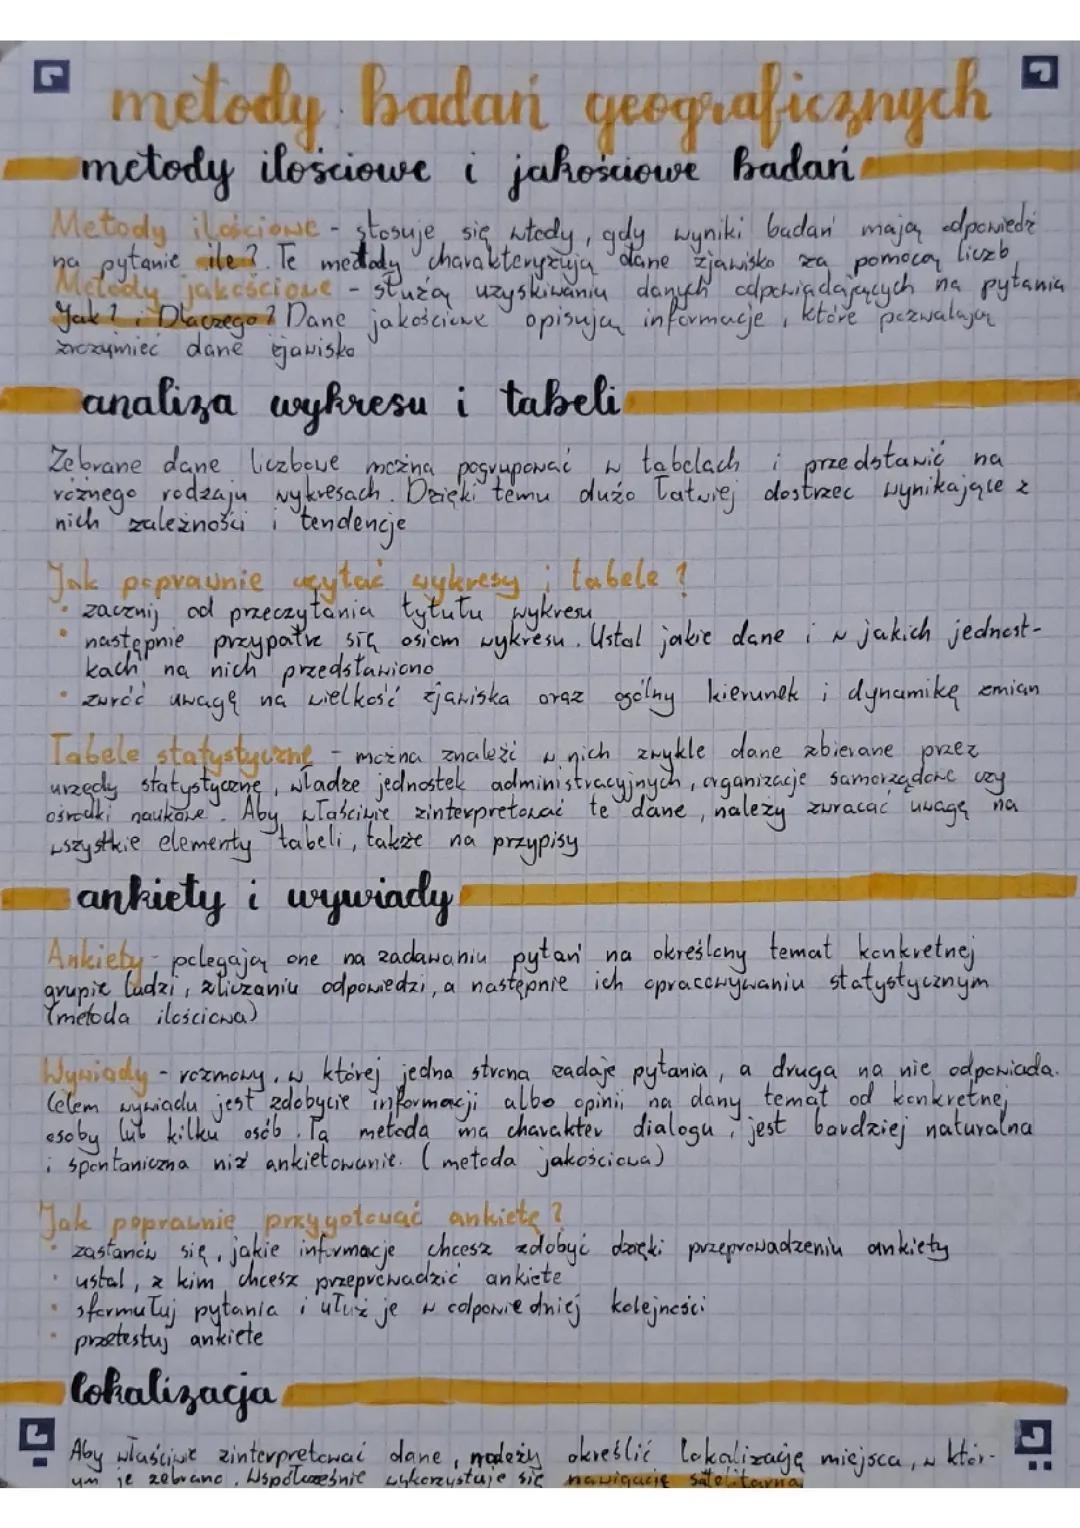 metody badań geograficznych
metody ilościowe i jakościowe badań
Metody ilościowe - stosuje się wtedy, gdy wyniki badań mają odpowiedź
na pytanie ile?. Te metody charakteryzują dane zjawisko za pomocą liczb
Metody jakościowe - służą uzyskiwaniu danych odpowiadających na pytania
Jak? i Dlaczego? Dane jakościowe opisują informacje, które pozwalają
zrozymieć dane zjawisko
analiza wykresu i tabeli
Zebrane dane liczbowe można pogrupować w tabelach i przedstawić na
różnego rodzaju wykresach. Dzięki temu dużo łatwiej dostrzec wynikające z
nich zależności i tendencje
Jak poprawnie czytać wykresy i tabele?
• zacznij od przeczytania tytułu wykresu
• następnie przypatrz się osiom wykresu. Ustal jakie dane i w jakich jednost-
kach na nich przedstawiono
• zwróć uwagę na wielkość zjawiska oraz ogólny kierunek i dynamikę zmian
Tabele statystyczne - można znaleźć w nich zwykle dane zbierane przez
urzędy statystyczne, władze jednostek administracyjnych, organizacje samorządowe czy
ośrodki naukowe. Aby właściwie zinterpretować te dane, należy zwracać uwagę na
wszystkie elementy tabeli, także na przypisy
ankiety i wywiady
Ankiety - polegają one na zadawaniu pytań na określony temat konkretnej
grupie ludzi, zliczaniu odpowiedzi, a następnie ich opracowywaniu statystycznym
(metoda ilościowa)
Wywiady - rozmowy, w której jedna strona zadaje pytania, a druga na nie odpowiada.
Celem wywiadu jest zdobycie informacji albo opinii na dany temat od konkretnej
osoby lub kilku osób. Ta metoda ma charakter dialogu, jest bardziej naturalna
i spontaniczna niż ankietowanie. (metoda jakościowa)
Jak poprawnie przygotować ankietę?
• zastanów się, jakie informacje chcesz zdobyć dzięki przeprowadzeniu ankiety
• ustal, z kim chcesz przeprowadzić ankiete
• sformułuj pytania i ułuż je w odpowiedniej kolejności
• przetestuj ankiete
lokalizacja
Aby właściwie zinterpretować dane, należy określić lokalizację miejsca, w któr-
ym je zebrano. Współcześnie wykorzystuje się nawigację satelitarną